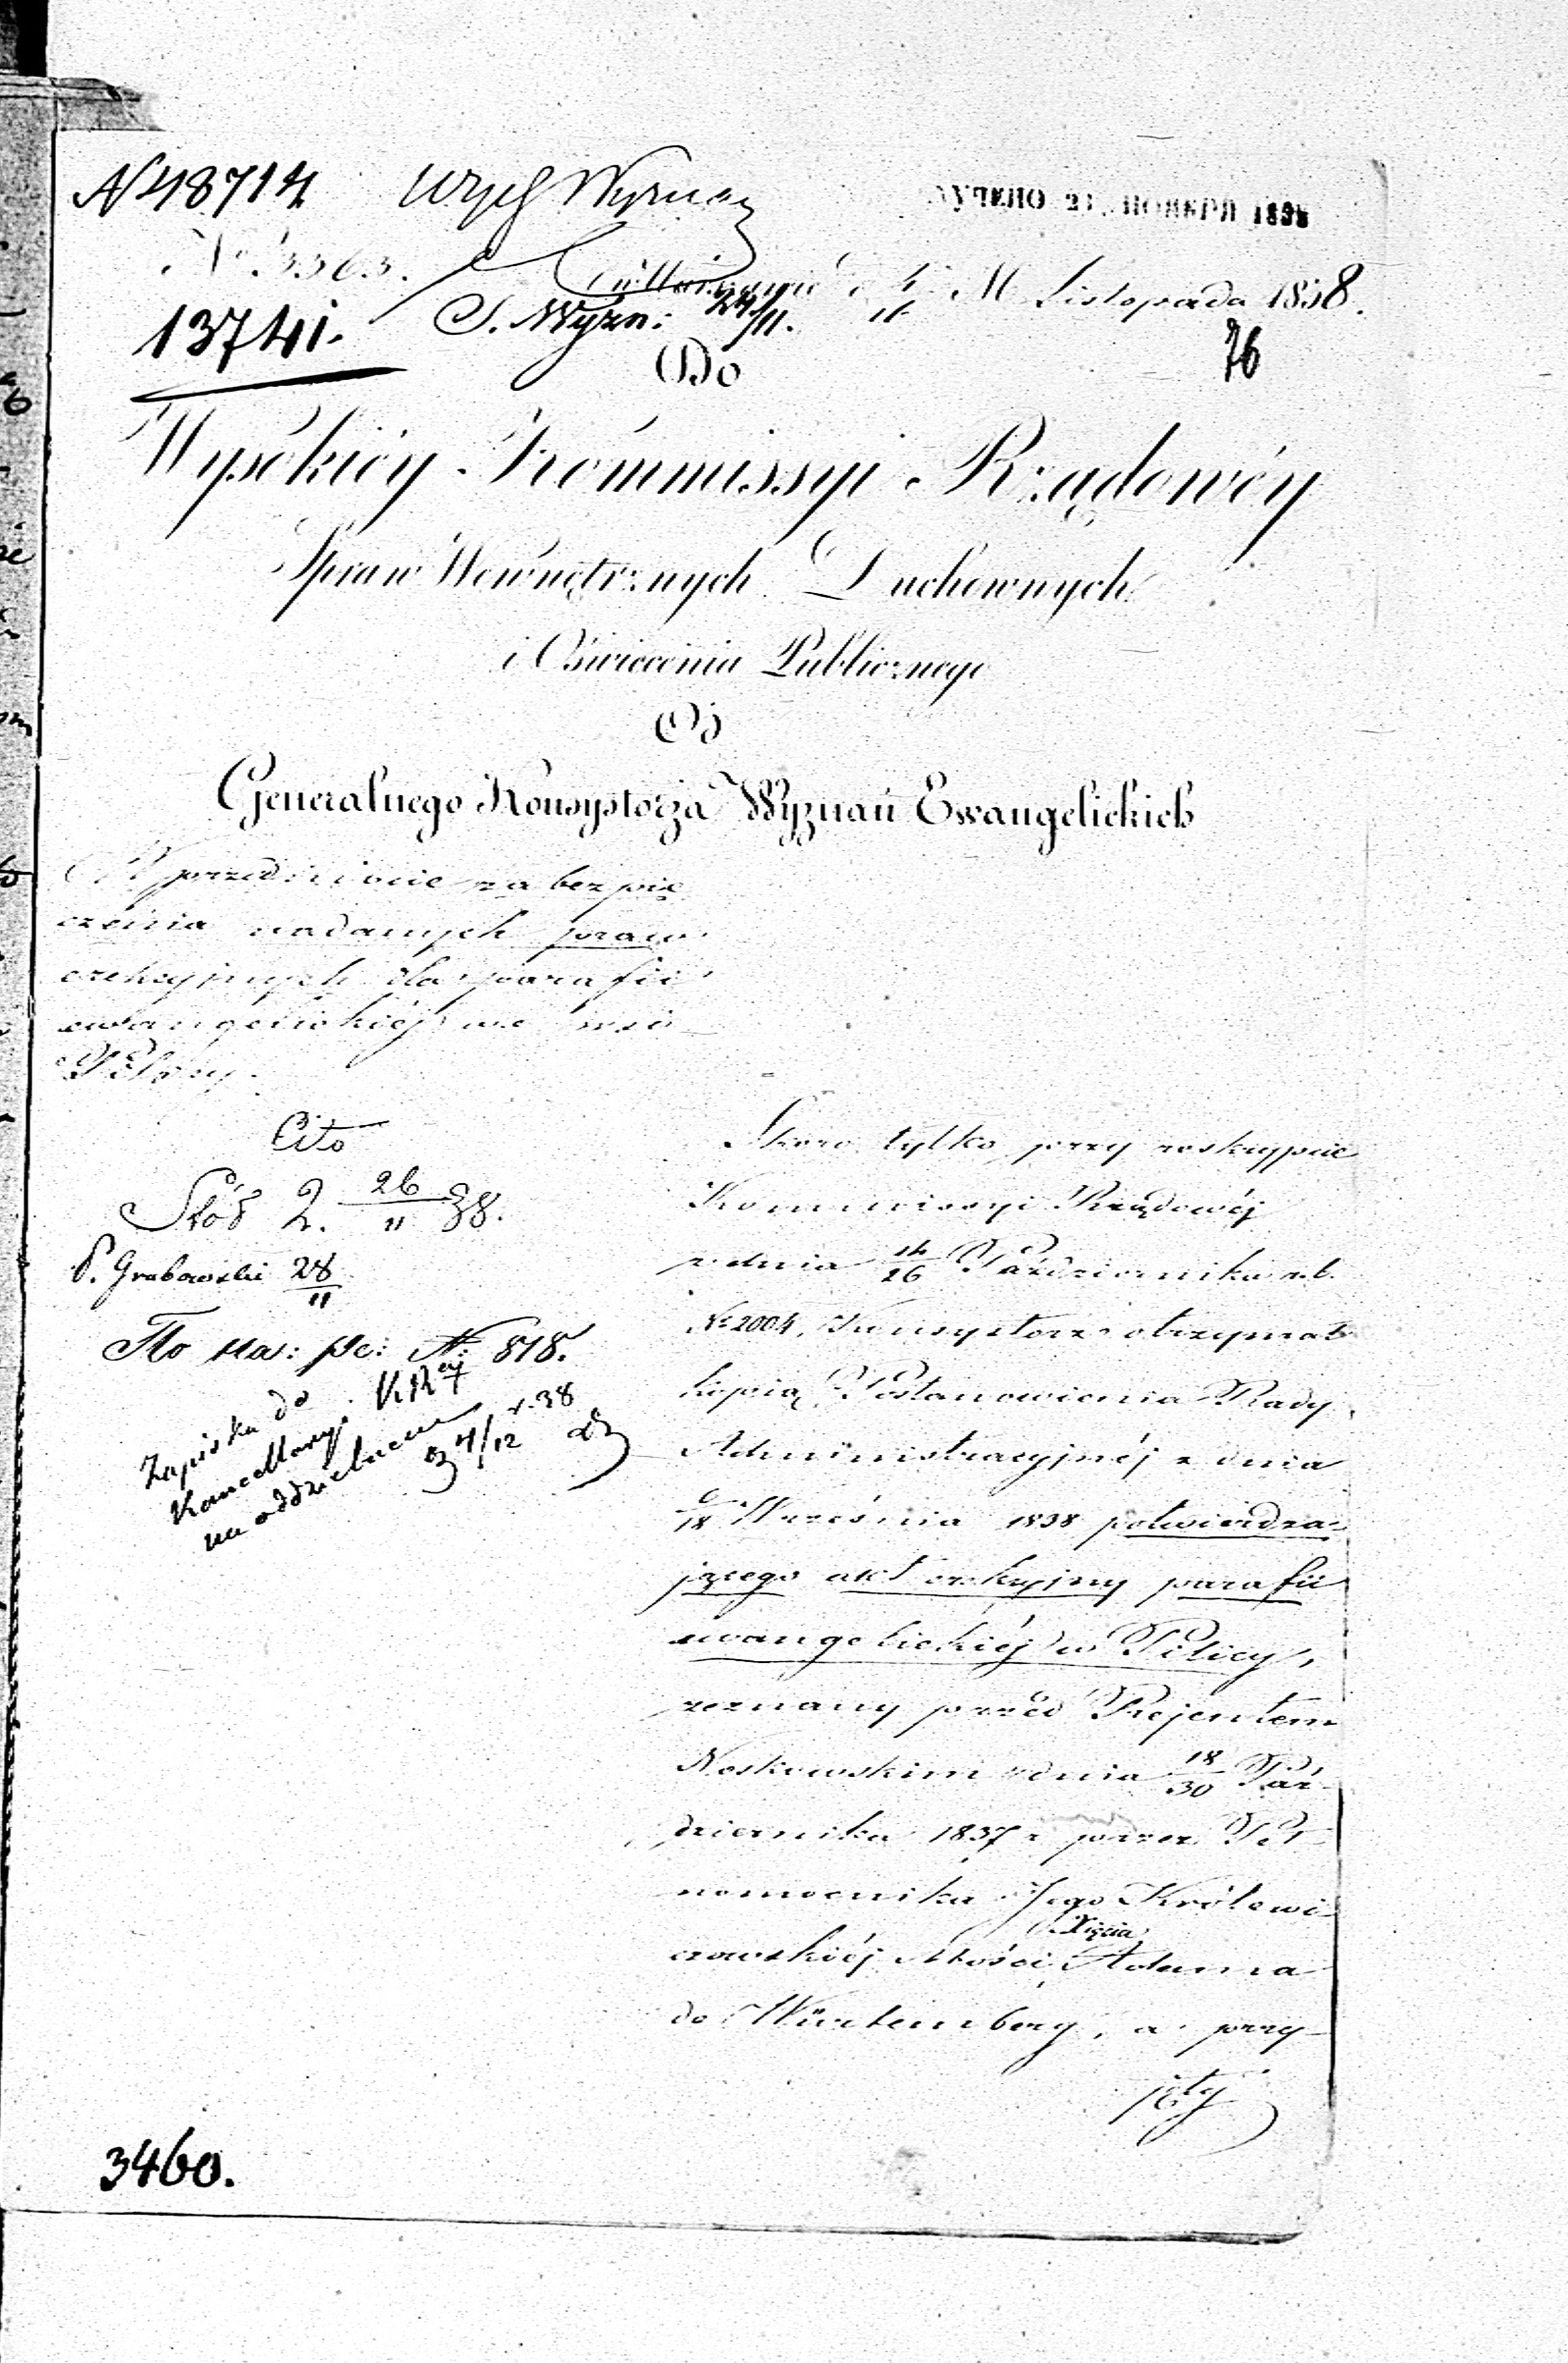 N 48714 Wysch Wyznan
УЧЕНО 21 НОЯБРЯ 1838
No 3363.
w Warszawie d. M Listopada 1838.
13741. S. Wyzn: 24/11.
76
Do
Wysokiéy Kommissyi Rządowéy
Spraw Wewnętrznych Duchownych
i Oświecenia Publicznego
Od
Generalnego Konsystorza Wyznań Ewangelickich
W przedmiocie zabezpie
czenia nadanych praw
erekcyjnych dla parafii
ewangelickiéj we wsi
Cito
2. 26/11 38.
P. Grabowski 28/11
No 818.
Zapiska do
Kancellaryi KRéy
na oddzielnem
4/12 38
Skoro tylko przy reskrypcie
Kommissyi Rządowéj
z dnia 14/26 Października r.b.
No 2004, Konsystorz otrzymał
kopią Postanowienia Rady
Administracyjnéj z dnia
6/18 Września 1838 potwierdza-
jącego akt erekcyjny parafii
ewangelickiéj w Pilicy,
zeznany przed Rejentem
Noskowskim z dnia 18/30 Paź-
dziernika 1837 r przez Peł
nomocnika Jego Królewi-
czowskiéj Mości Xięcia Adama
do Würtemberg, a przy-
jęty
3460.